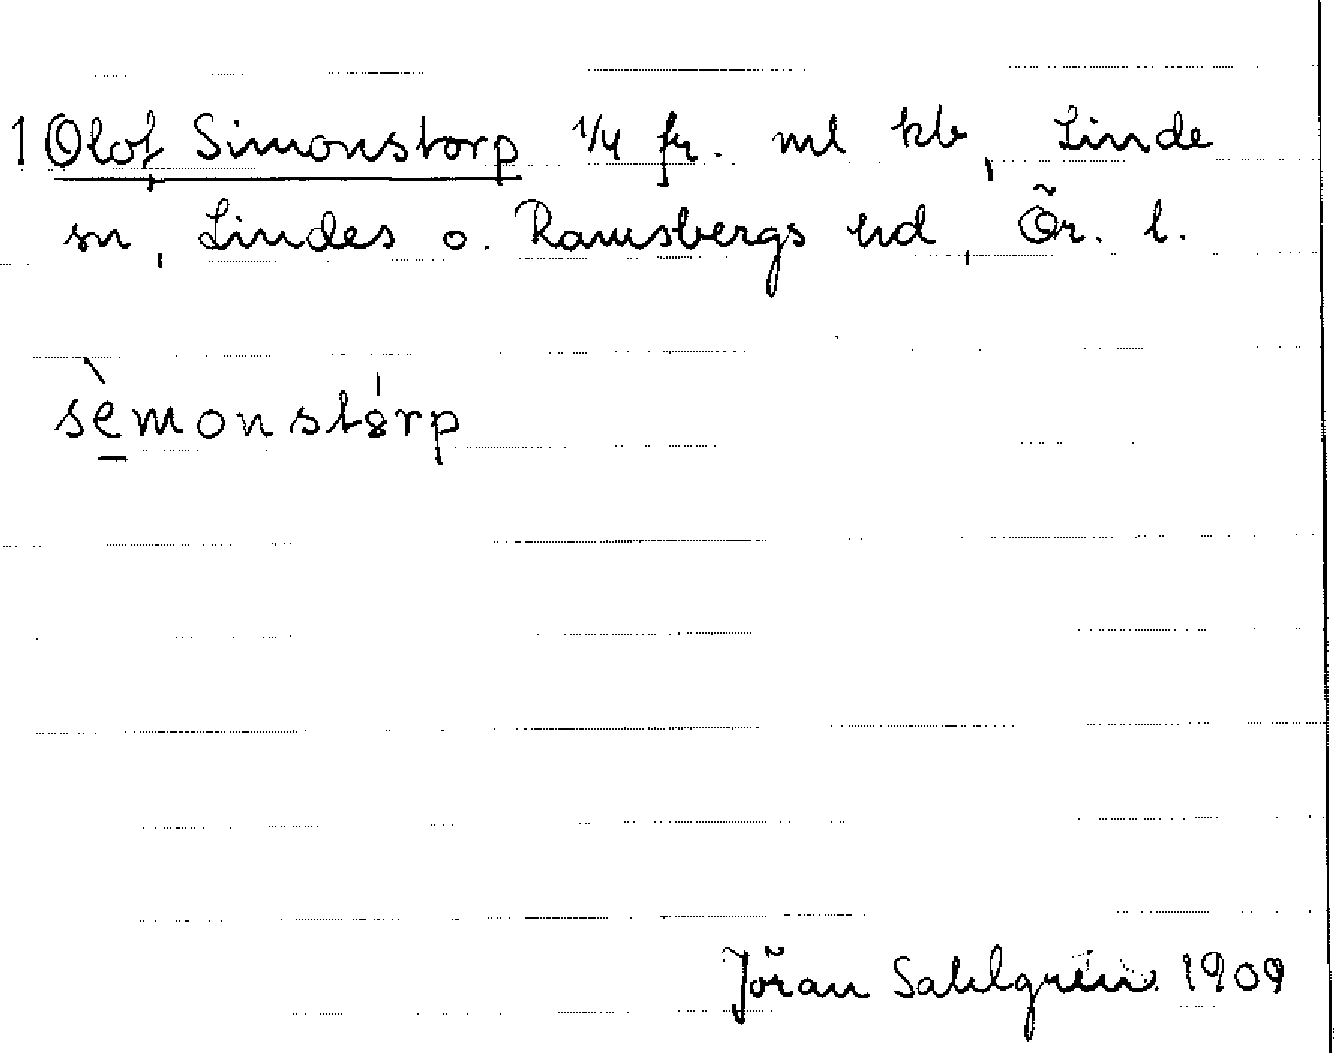 1 Olof Simonstorp 1/4 fr. ml kb, Linde
sn, Lindes o. Ramsbergs hd, Ör. l.
sèmonstórp
Jöran Sahlgren 1909